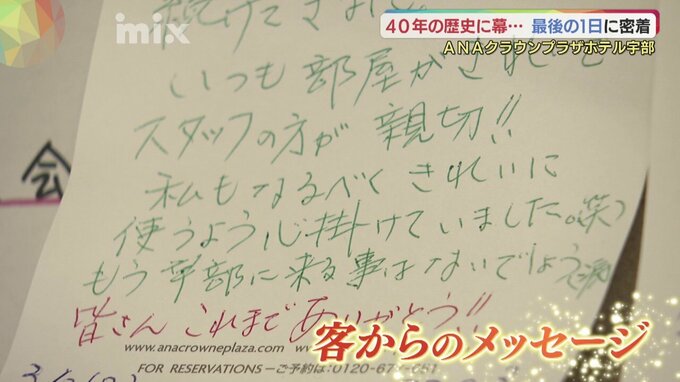 imix
40年の歴史に幕… 最後の1日に密着
ANAクラウンプラザホテル宇部
会
続けてきました。
いつも部屋がきれいで
スタッフの方が親切!!
私もなるべくきれいに
使うよう心掛けていました。(笑)
もう宇部に来る事はないでしょう(涙)
皆さんこれまでありがとう!!
www.anacrowneplaza.com
FOR RESERVATIONS―ご予約は:0120-67
客からのメッセージ